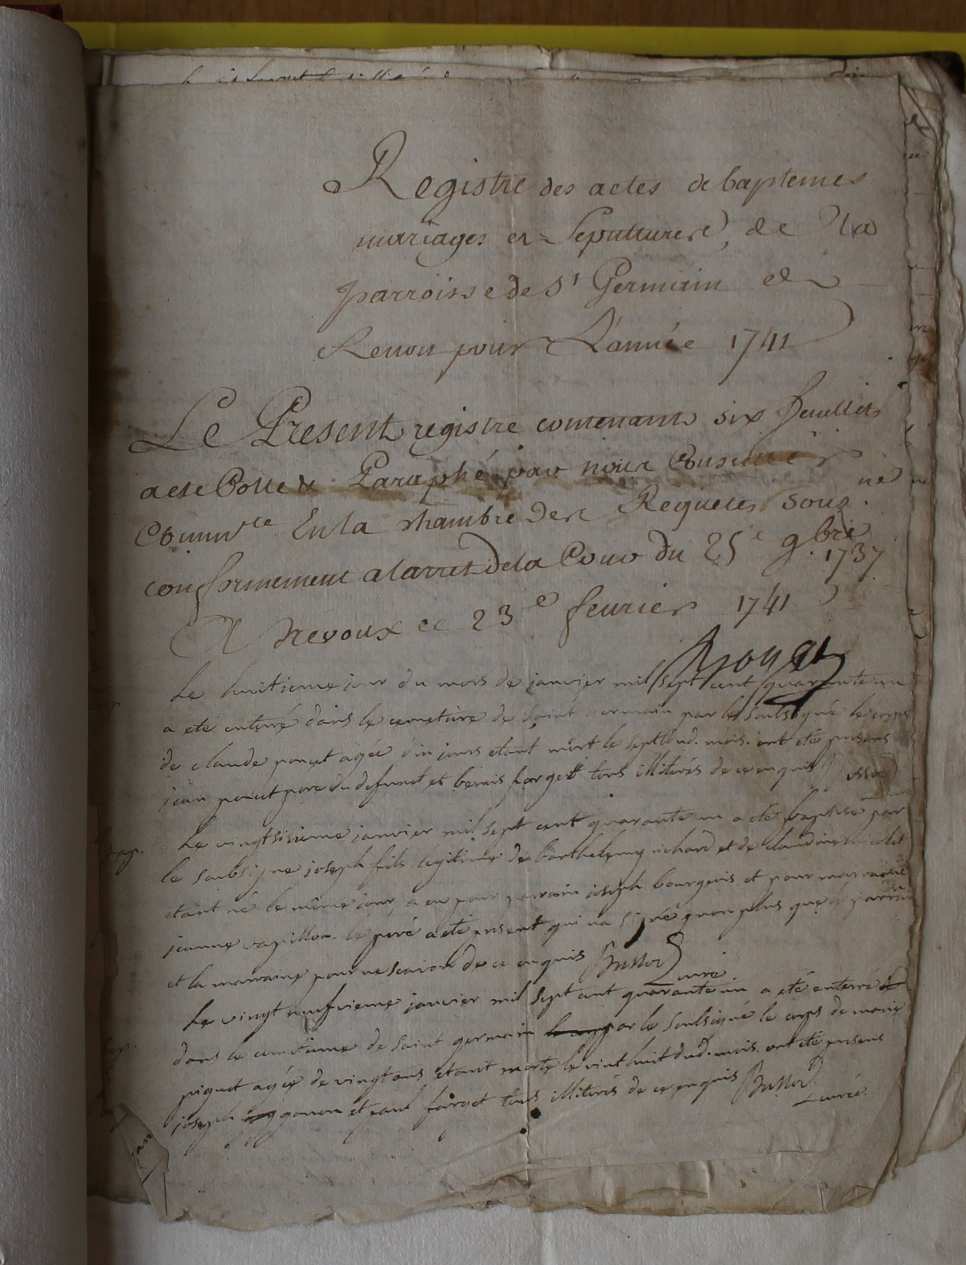 Registre des actes de baptemes
mariages et Sepultures, de la
parroisse de St Germain de
Renon pour L'année 1741
Le Present registre contenant six feuillets
a ete Cotté & Paraphé par nous Conseiller
Commre En la chambre des Requetes Sous.né
conformement a larrest de la Cour du 25e 9bre 1737
A Trevoux ce 23e fevrier 1741
Le huitieme jour du mois de janvier mil sept cent quarante un
a eté enterré dans le cemetiere de Saint germain par le soubsigné le corps
de claude poncet agée d'un jours etant mort le sept dud. mois. ont été presens
jean poncet pere du defunct et benois forget tous illiterés de ce enquis
Le vingtsixieme janvier mil sept cent quarante un a eté baptisé par
le soubsigne joseph fils legitime de barthelemy richard et de claudine
etant né le même jour, a eu pour parrain joseph bourgeois et pour marraine
jeanne papillon. le peré a eté present qui na signé gnon plus que le parrain
et la marraine pour ne scavoir de ce enquis
curé
Le vingt neufvieme janvier mil sept cent quarante un a eté enterré
dans le cemetiere de saint germain par le soubsigné le corps de marie
piquet agée de vingt ans etant morte le vint huit dud. mois. ont eté presens
joseph gonon et paul forget tous illiterés de ce enquis
curé